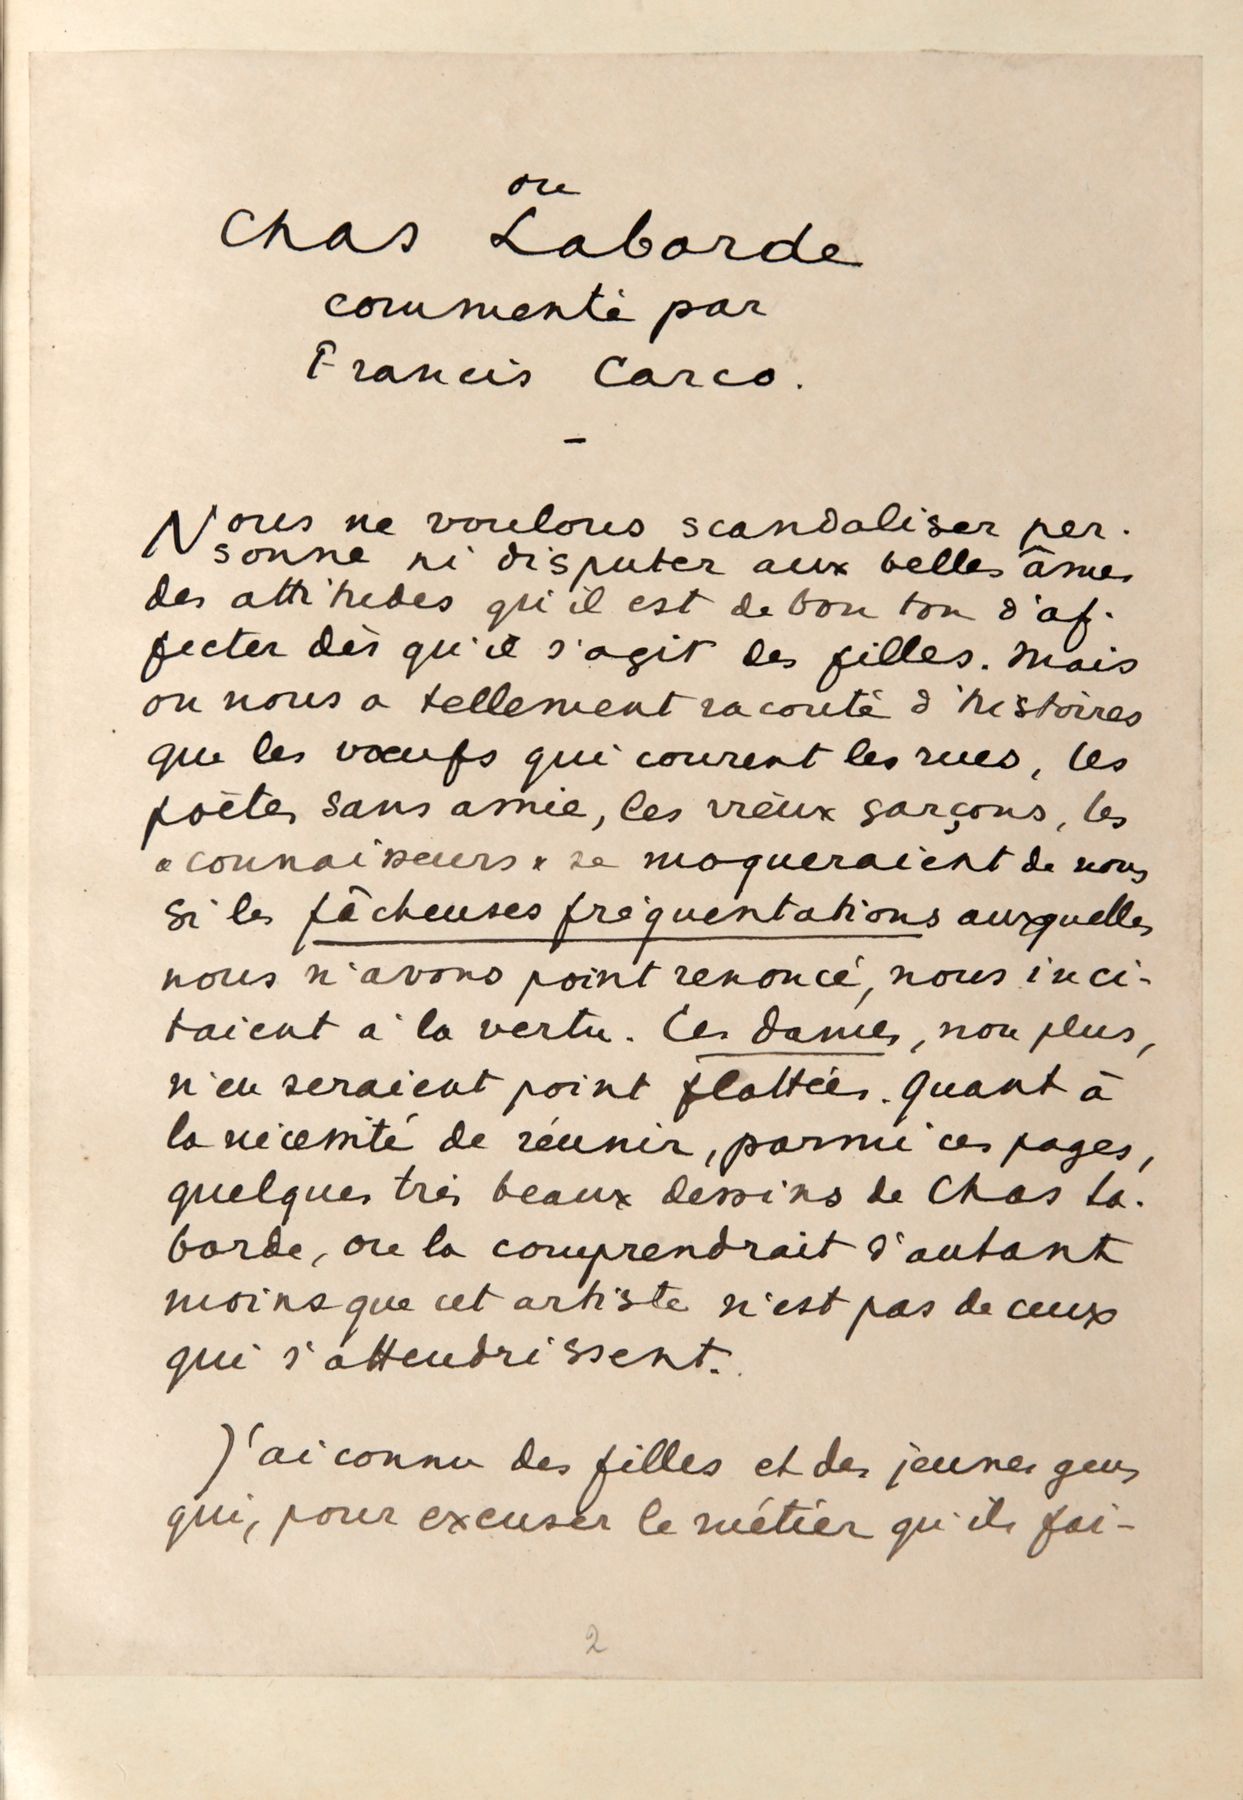 ou
Chas Laborde
commenté par
Francis Carco.
–
Nous ne voulons scandaliser per-
sonne ni disputer aux belles âmes
des attitudes qu'il est de bon ton d'af-
fecter dès qu'il s'agit des filles. Mais
on nous a tellement raconté d'histoires
que les vœufs qui courent les rues, les
poètes sans amie, les vieux garçons, les
« connaisseurs » se moqueraient de nous
si les fâcheuses fréquentations auxquelles
nous n'avons point renoncé, nous inci-
taient à la vertu. Ces dames, non plus,
n'en seraient point flattées. Quant à
la nécessité de réunir, parmi ces pages,
quelques très beaux dessins de Chas La-
borde, on la comprendrait d'autant
moins que cet artiste n'est pas de ceux
qui s'attendrissent.
J'ai connu des filles et des jeunes gens
qui, pour excuser le métier qu'ils fai-
2